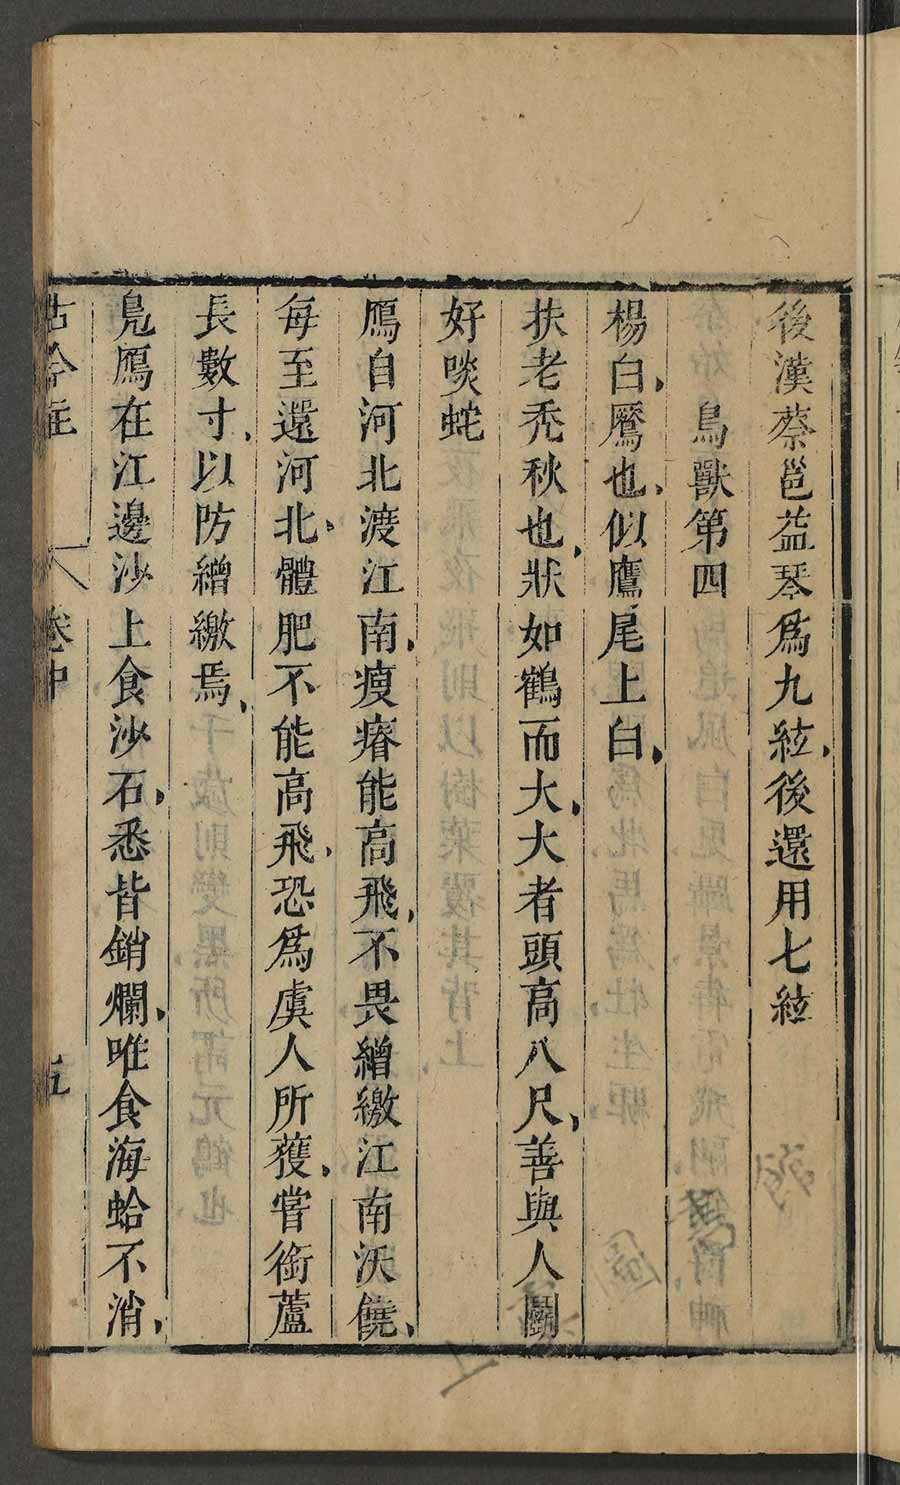 後漢蔡邕益琴爲九絃、後還用七絃
鳥獸第四
楊白、鷹也、似鷹尾上白、
扶老禿秋也、狀如鶴而大、大者頭高八尺、善與人鬭
好啖蛇
鴈自河北渡江南、瘦瘠能高飛、不畏繒繳江南沃饒、
每至還河北、體肥不能高飛、恐爲虞人所獲、嘗銜蘆
長數寸、以防繒繳焉、
鳬鴈在江邊沙上食沙石、悉皆銷爛、唯食海蛤不消、
古今註 卷中 五